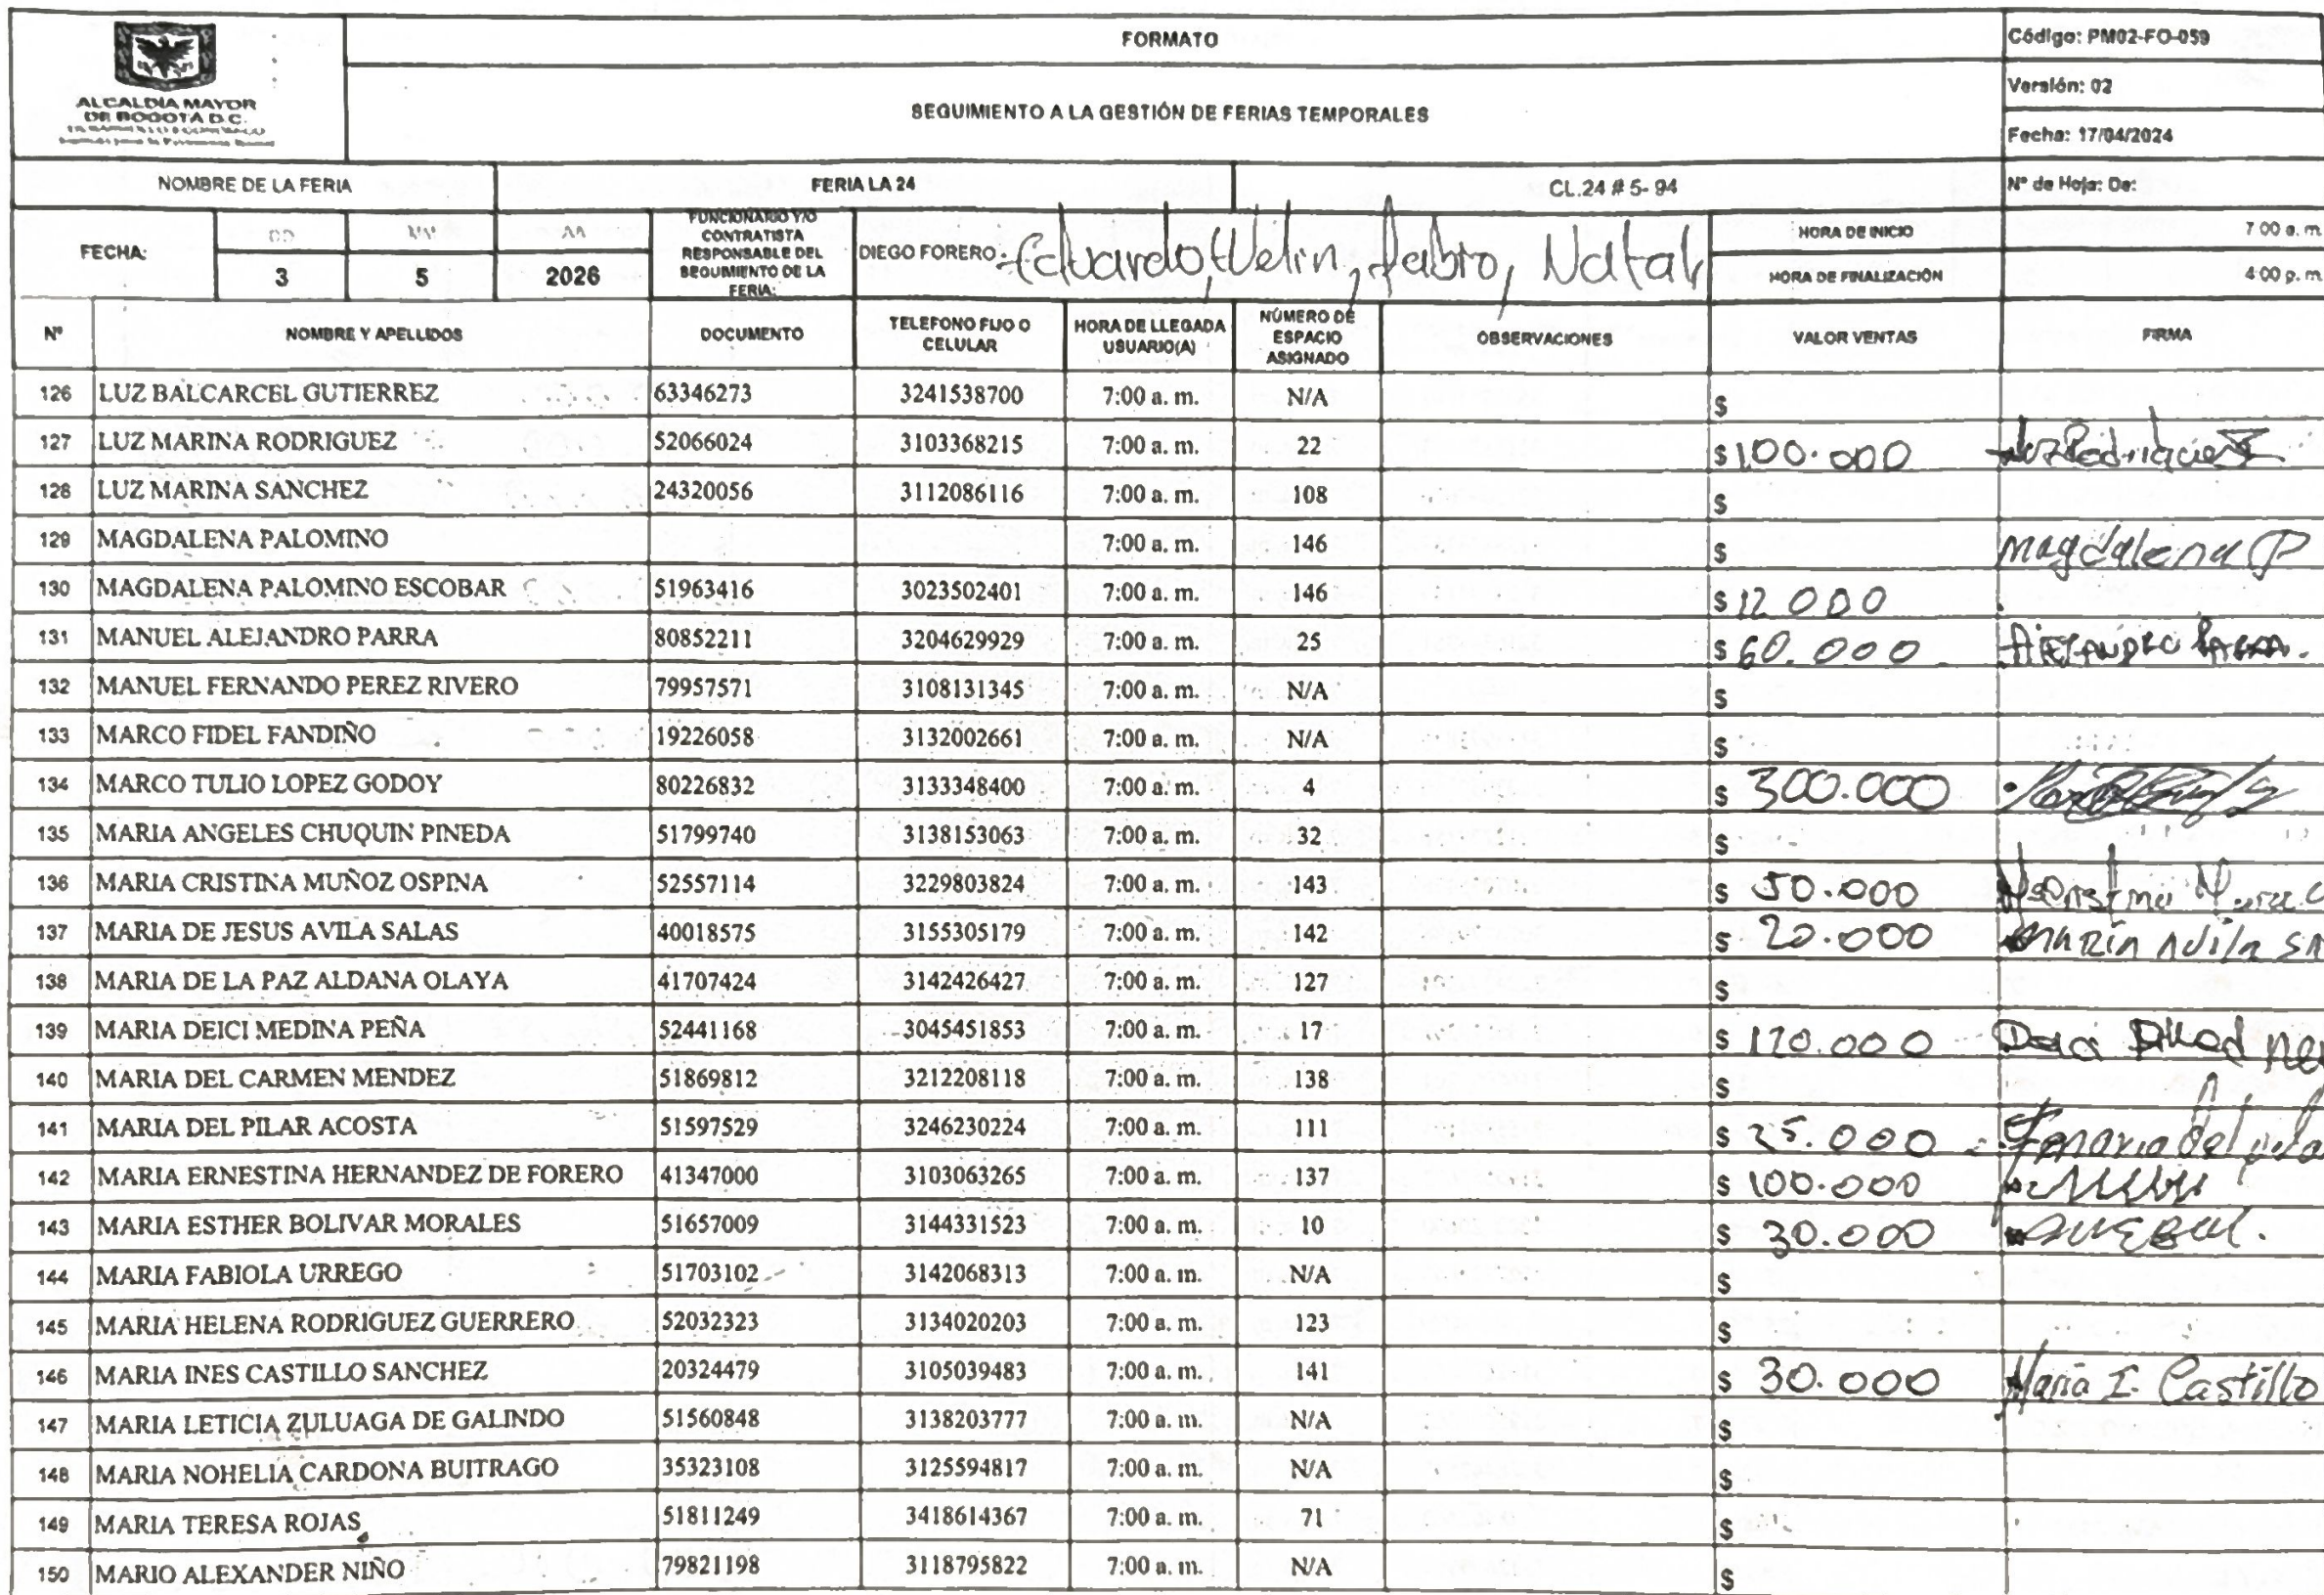 FORMATO
Código: PM02-FO-059
Versión: 02
ALCALDÍA MAYOR
DE BOGOTÁ D.C.
SEGUIMIENTO A LA GESTIÓN DE FERIAS TEMPORALES
Fecha: 17/04/2024
NOMBRE DE LA FERIA FERIA LA 24 CL.24 # 5- 94 N° de Hoja: De:
FECHA: DD MM AA
3 5 2026
FUNCIONARIO Y/O
CONTRATISTA
RESPONSABLE DEL
SEGUIMIENTO DE LA
FERIA:
DIEGO FORERO Eduardo, Welin, Natal
HORA DE INICIO 7:00 a. m.
HORA DE FINALIZACIÓN 4:00 p. m.
N° NOMBRE Y APELLIDOS DOCUMENTO TELEFONO FIJO O CELULAR HORA DE LLEGADA USUARIO(A) NÚMERO DE ESPACIO ASIGNADO OBSERVACIONES VALOR VENTAS FIRMA
126 LUZ BALCARCEL GUTIERREZ 63346273 3241538700 7:00 a. m. N/A $
127 LUZ MARINA RODRIGUEZ 52066024 3103368215 7:00 a. m. 22 $ 100.000
128 LUZ MARINA SANCHEZ 24320056 3112086116 7:00 a. m. 108 $
129 MAGDALENA PALOMINO 7:00 a. m. 146 $ magdalena P
130 MAGDALENA PALOMINO ESCOBAR 51963416 3023502401 7:00 a. m. 146 $ 12 000
131 MANUEL ALEJANDRO PARRA 80852211 3204629929 7:00 a. m. 25 $ 60.000
132 MANUEL FERNANDO PEREZ RIVERO 79957571 3108131345 7:00 a. m. N/A $
133 MARCO FIDEL FANDIÑO 19226058 3132002661 7:00 a. m. N/A $
134 MARCO TULIO LOPEZ GODOY 80226832 3133348400 7:00 a. m. 4 $ 300.000
135 MARIA ANGELES CHUQUIN PINEDA 51799740 3138153063 7:00 a. m. 32 $
136 MARIA CRISTINA MUÑOZ OSPINA 52557114 3229803824 7:00 a. m. 143 $ 50.000
137 MARIA DE JESUS AVILA SALAS 40018575 3155305179 7:00 a. m. 142 $ 20.000
138 MARIA DE LA PAZ ALDANA OLAYA 41707424 3142426427 7:00 a. m. 127 $
139 MARIA DEICI MEDINA PEÑA 52441168 3045451853 7:00 a. m. 17 $ 120.000
140 MARIA DEL CARMEN MENDEZ 51869812 3212208118 7:00 a. m. 138 $
141 MARIA DEL PILAR ACOSTA 51597529 3246230224 7:00 a. m. 111 $ 25.000
142 MARIA ERNESTINA HERNANDEZ DE FORERO 41347000 3103063265 7:00 a. m. 137 $ 100.000
143 MARIA ESTHER BOLIVAR MORALES 51657009 3144331523 7:00 a. m. 10 $ 30.000
144 MARIA FABIOLA URREGO 51703102 3142068313 7:00 a. m. N/A $
145 MARIA HELENA RODRIGUEZ GUERRERO 52032323 3134020203 7:00 a. m. 123 $
146 MARIA INES CASTILLO SANCHEZ 20324479 3105039483 7:00 a. m. 141 $ 30.000 Maria I. Castillo
147 MARIA LETICIA ZULUAGA DE GALINDO 51560848 3138203777 7:00 a. m. N/A $
148 MARIA NOHELIA CARDONA BUITRAGO 35323108 3125594817 7:00 a. m. N/A $
149 MARIA TERESA ROJAS 51811249 3418614367 7:00 a. m. 71 $
150 MARIO ALEXANDER NIÑO 79821198 3118795822 7:00 a. m. N/A $